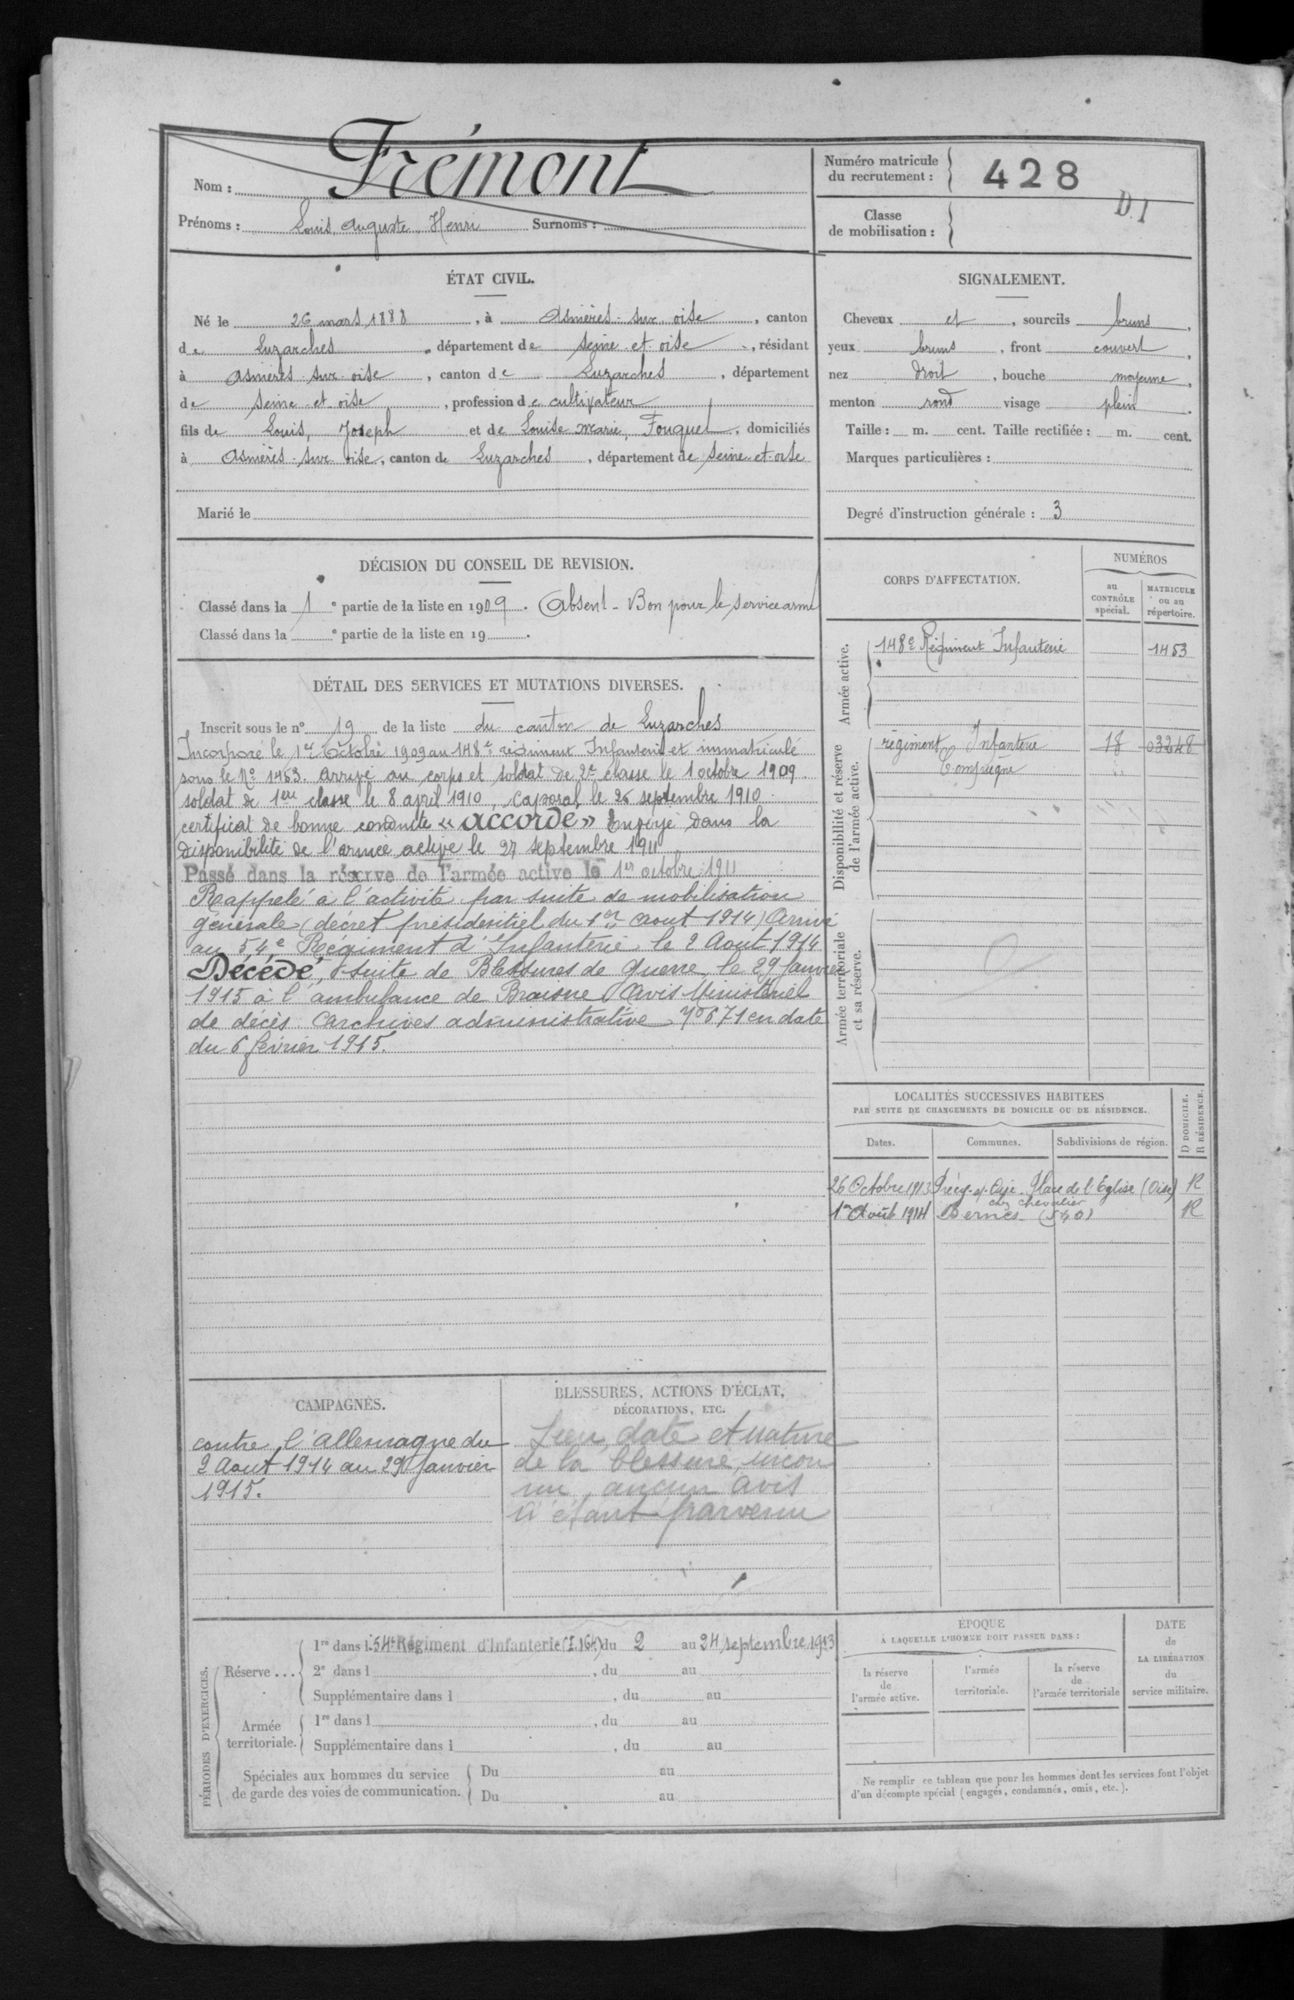 Nom : Frémont
Prénoms : Louis Auguste Henri Surnoms :
Numéro matricule du recrutement : 428
D1
Classe de mobilisation :
ÉTAT CIVIL.
Né le 26 mars 1888, à Asnières-sur-oise, canton
de Luzarches, département de Seine et oise, résidant
à Asnières-sur-oise, canton de Luzarches, département
de Seine et oise, profession de cultivateur
fils de Louis, Joseph et de Louise Marie, Fouquet, domiciliés
à Asnières-sur oise, canton de Luzarches, département de Seine-et-oise
Marié le
SIGNALEMENT.
Cheveux et, sourcils bruns,
yeux bruns, front couvert,
nez droit, bouche moyenne,
menton rond visage plein.
Taille : m. cent. Taille rectifiée : m. cent.
Marques particulières :
Degré d'instruction générale : 3
DÉCISION DU CONSEIL DE REVISION.
Classé dans la 1e partie de la liste en 1909. Absent - Bon pour le service armé
Classé dans la e partie de la liste en 19 .
DÉTAIL DES SERVICES ET MUTATIONS DIVERSES.
Inscrit sous le n° 19 de la liste du canton de Luzarches
Incorporé le 1er Octobre 1909 au 148e régiment Infanterie et immatriculé
sous le No 1453. Arrivé au corps et soldat de 2e classe le 1 octobre 1909.
soldat de 1ere classe le 8 april 1910, Caporal le 26 septembre 1910.
certificat de bonne conduite « accordé » Envoyé dans la
disponibilité de l'armée active le 27 septembre 1911
Passé dans la réserve de l'armée active le 1er octobre 1911
Rappelé à l'activité par suite de mobilisation
générale (décret présidentiel du 1er Aout 1914) Arrivé
au 54e Régiment d'Infanterie le 2 Aout 1914
Décédé, suite de Blessures de Guerre, le 29 Janvier
1915 à l'ambulance de Braisne (Avis Ministériel
de décès Archives administrative No 671 en date
du 6 février 1915.
CORPS D'AFFECTATION.
NUMÉROS
au CONTRÔLE spécial.
MATRICULE ou au répertoire.
Armée active.
148e Régiment Infanterie 1453
Disponibilité et réserve de l'armée active.
régiment Infanterie 18 03248
Compiègne
Armée territoriale et sa réserve.
LOCALITÉS SUCCESSIVES HABITÉES
PAR SUITE DE CHANGEMENTS DE DOMICILE OU DE RÉSIDENCE.
Dates. Communes. Subdivisions de région. D DOMICILE. R RÉSIDENCE.
26 Octobre 1913 Précy-s-Oise. Place de l'Eglise (Oise) R
chez Chevalier
1er Août 1914 Bernes (S&O) R
CAMPAGNES.
contre l'Allemagne du
2 Aout 1914 au 29 Janvier
1915.
BLESSURES, ACTIONS D'ÉCLAT,
DÉCORATIONS, ETC.
Lieu, date et nature
de la blessure, incon
nu, aucun avis
n'étant parvenu
PÉRIODES D'EXERCICES.
Réserve ...
1re dans l 54e Régiment d'Infanterie du 2 au 24 septembre 1913
2e dans l , du au
Supplémentaire dans l , du au
Armée territoriale.
1re dans l , du au
Supplémentaire dans l , du au
Spéciales aux hommes du service
de garde des voies de communication.
Du au
Du au
ÉPOQUE
À LAQUELLE L'HOMME DOIT PASSER DANS :
la réserve de l'armée active.
l'armée territoriale.
la réserve de l'armée territoriale
DATE de LA LIBÉRATION du service militaire.
Ne remplir ce tableau que pour les hommes dont les services font l'objet
d'un décompte spécial (engagés, condamnés, omis, etc.).